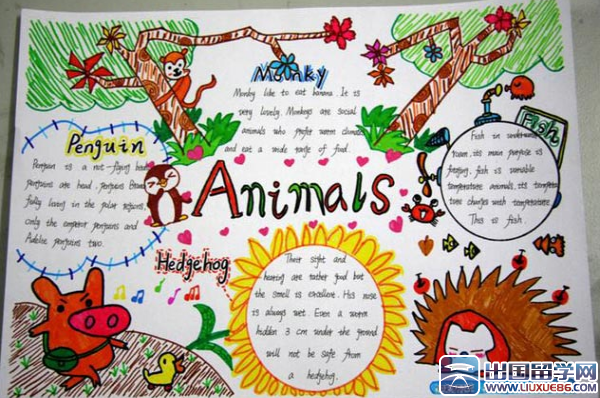 Monky
Monky like to eat banana. It is
very lovely. Monkeys are social
animals who prefer warm climate
and eat a wide range of food.
Penguin
Penguin is a not-flying bird
penguins are head. penguins
fully living in the polar regions,
only the emperor penguins and
Adelie penguins two.
Animals
Fish
Fish in
room. its main purpose is
fishing, fish is variable
temperature animals, its tempera
ture changes with temperature
This is fish.
Hedgehog
Their sight and
hearing are rather food but
the smell is excellent. His nose
is always wet. Even a worm
hidden 3 cm under the ground
will not be safe from
a hedgehog.
出国留学网
WWW.LIUXUE86.COM